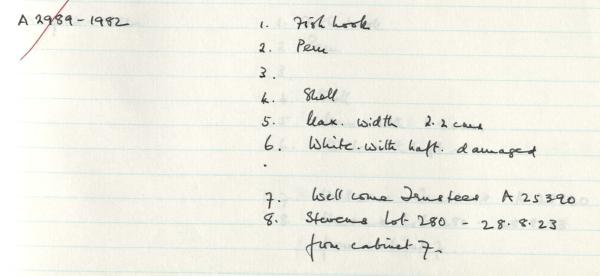 A 2989-1982 1. Fish hook
2. Peru
3.
4. Shell
5. Max. width 2.2 cms
6. White. with haft. damaged
.
7. Wellcome Trustees A 25390
8. Stevens Lot 280 - 28.8.23
from cabinet 7.